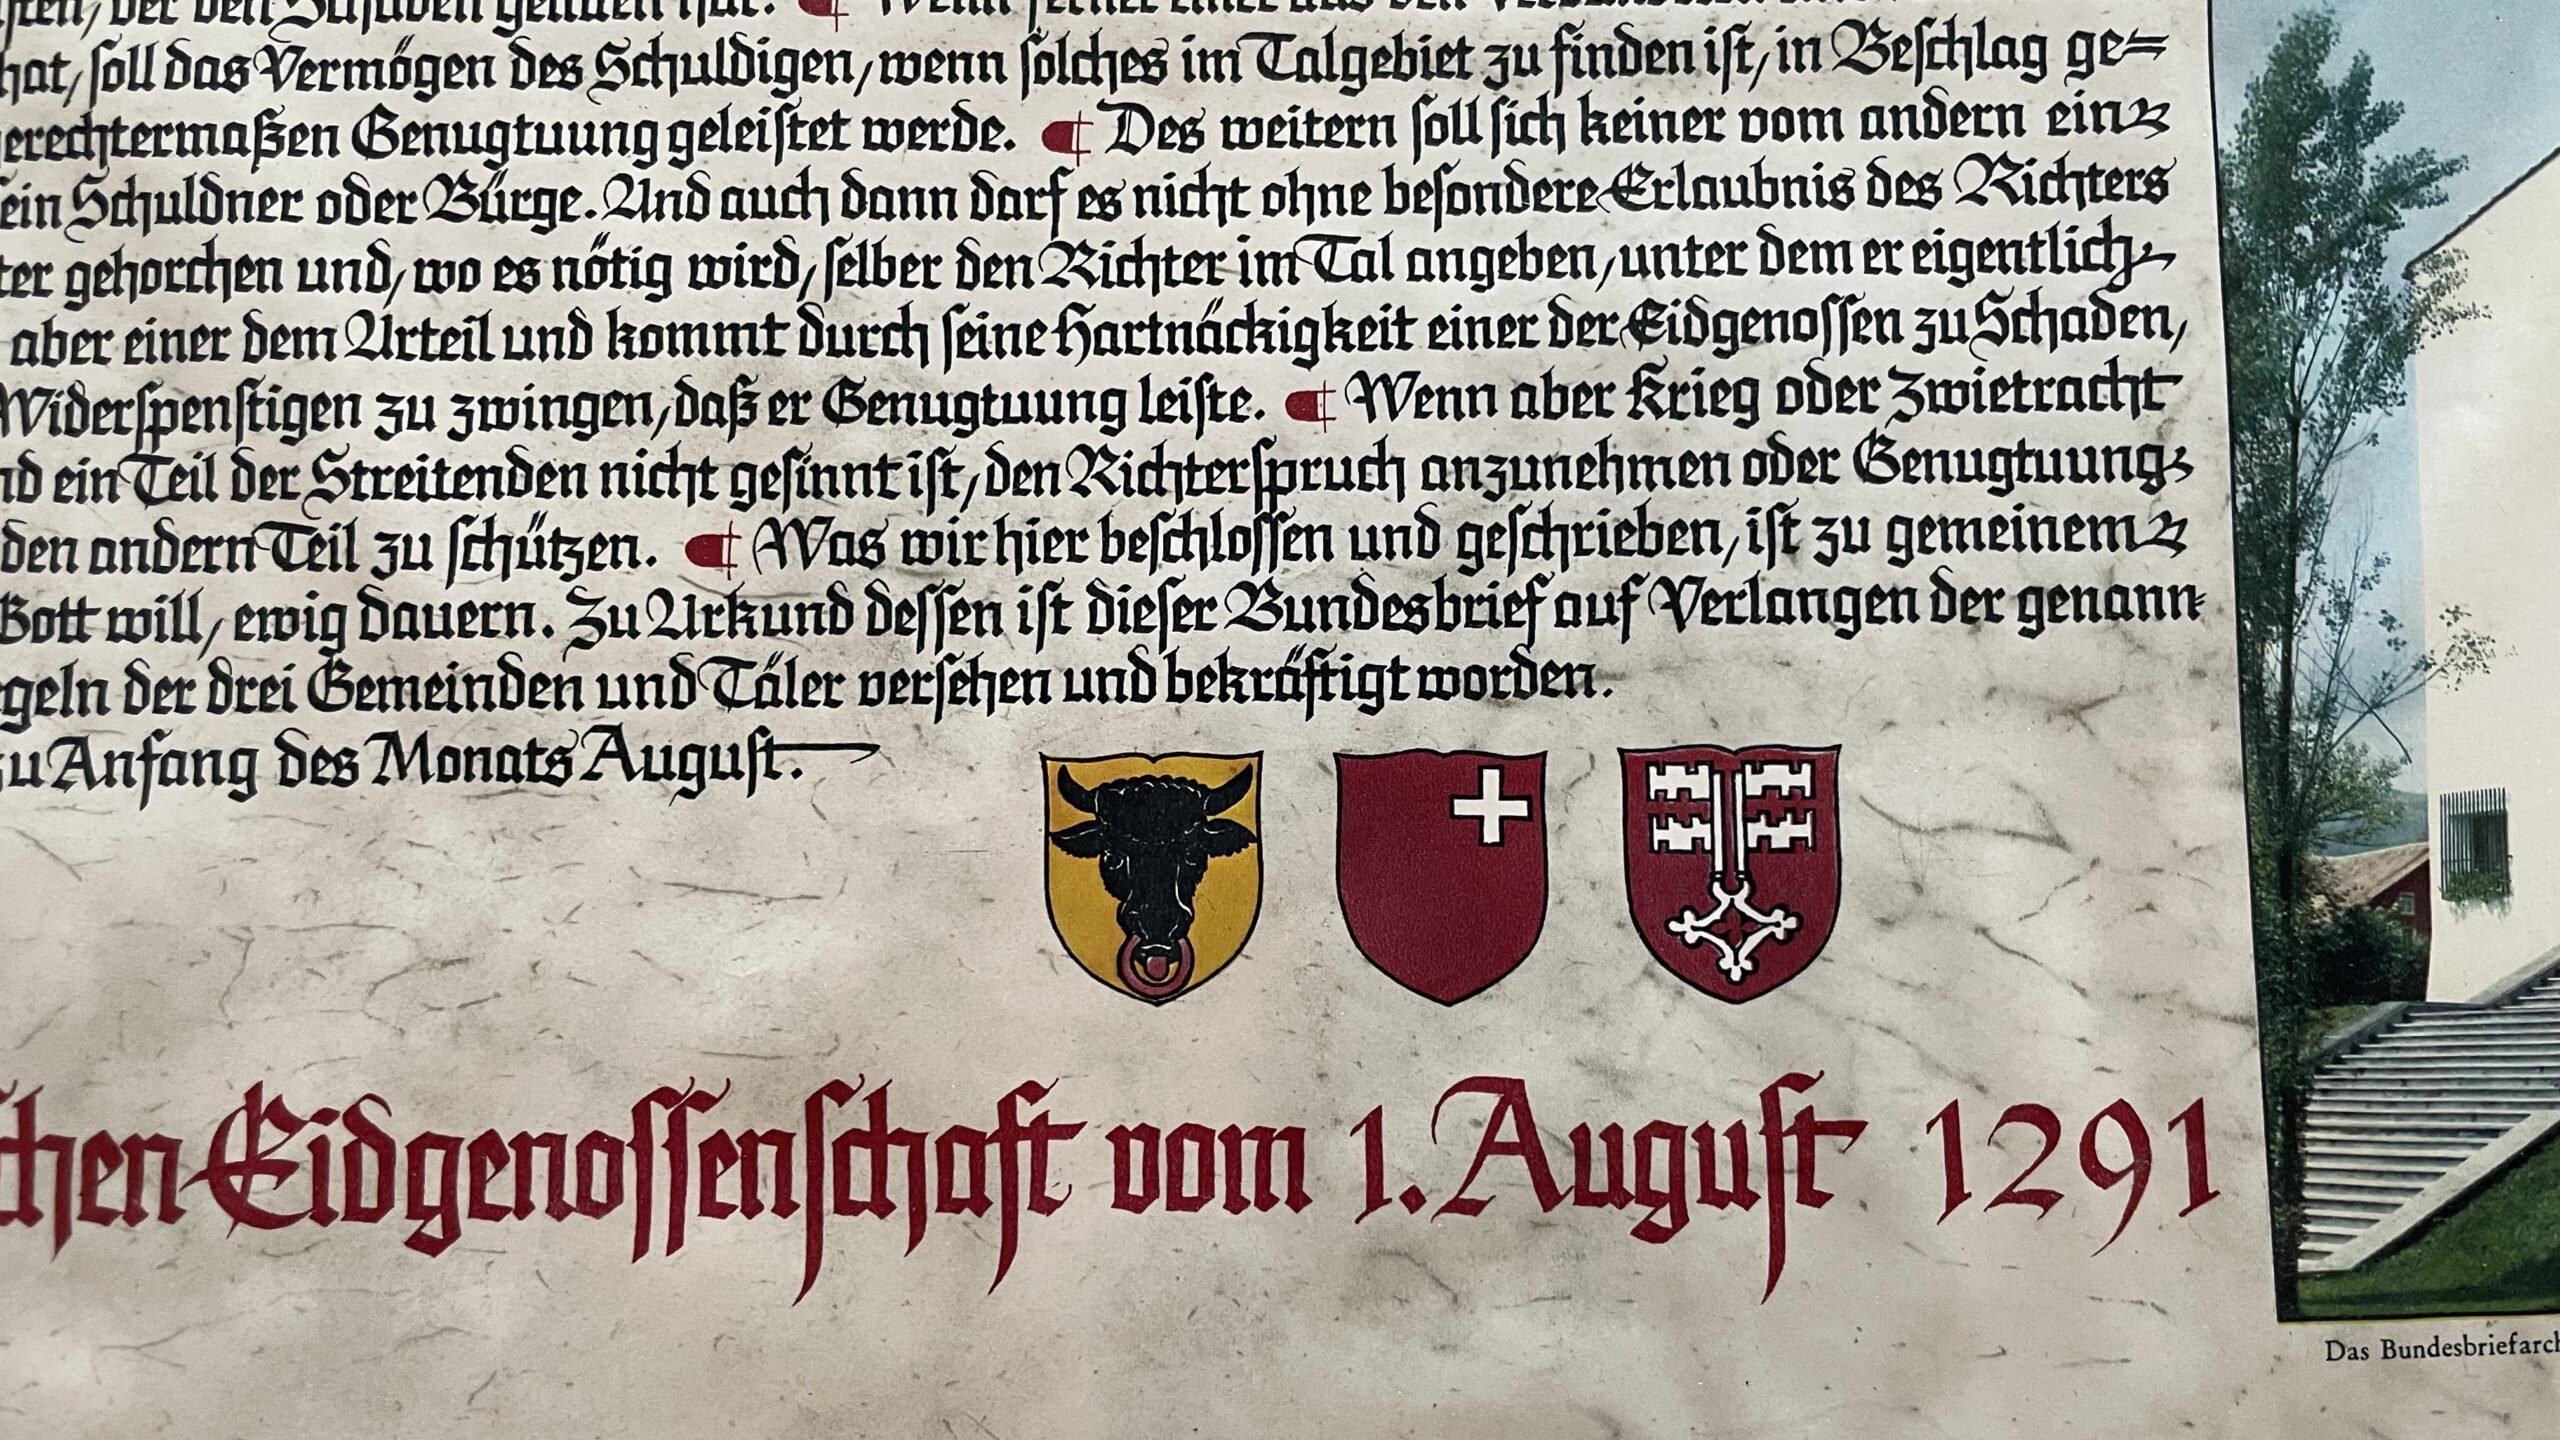 der den Schaden gelitten hat. Wenn ferner einer aus den Verbündeten einen
hat, soll das Vermögen des Schuldigen, wenn solches im Talgebiet zu finden ist, in Beschlag ge=
erechtermaßen Genugtuung geleistet werde. Des weitern soll sich keiner vom andern ein
ein Schuldner oder Bürge. Und auch dann darf es nicht ohne besondere Erlaubnis des Richters
ter gehorchen und, wo es nötig wird, selber den Richter im Tal angeben, unter dem er eigentlich
aber einer dem Urteil und kommt durch seine Hartnäckigkeit einer der Eidgenossen zu Schaden,
Widerspenstigen zu zwingen, daß er Genugtuung leiste. Wenn aber Krieg oder Zwietracht
nd ein Teil der Streitenden nicht gesinnt ist, den Richterspruch anzunehmen oder Genugtuung
den andern Teil zu schützen. Was wir hier beschlossen und geschrieben, ist zu gemeinem
Gott will, ewig dauern. Zu Urkund dessen ist dieser Bundesbrief auf Verlangen der genann=
geln der drei Gemeinden und Täler versehen und bekräftigt worden.
zu Anfang des Monats August.
schen Eidgenossenschaft vom 1. August 1291
Das Bundesbriefarch